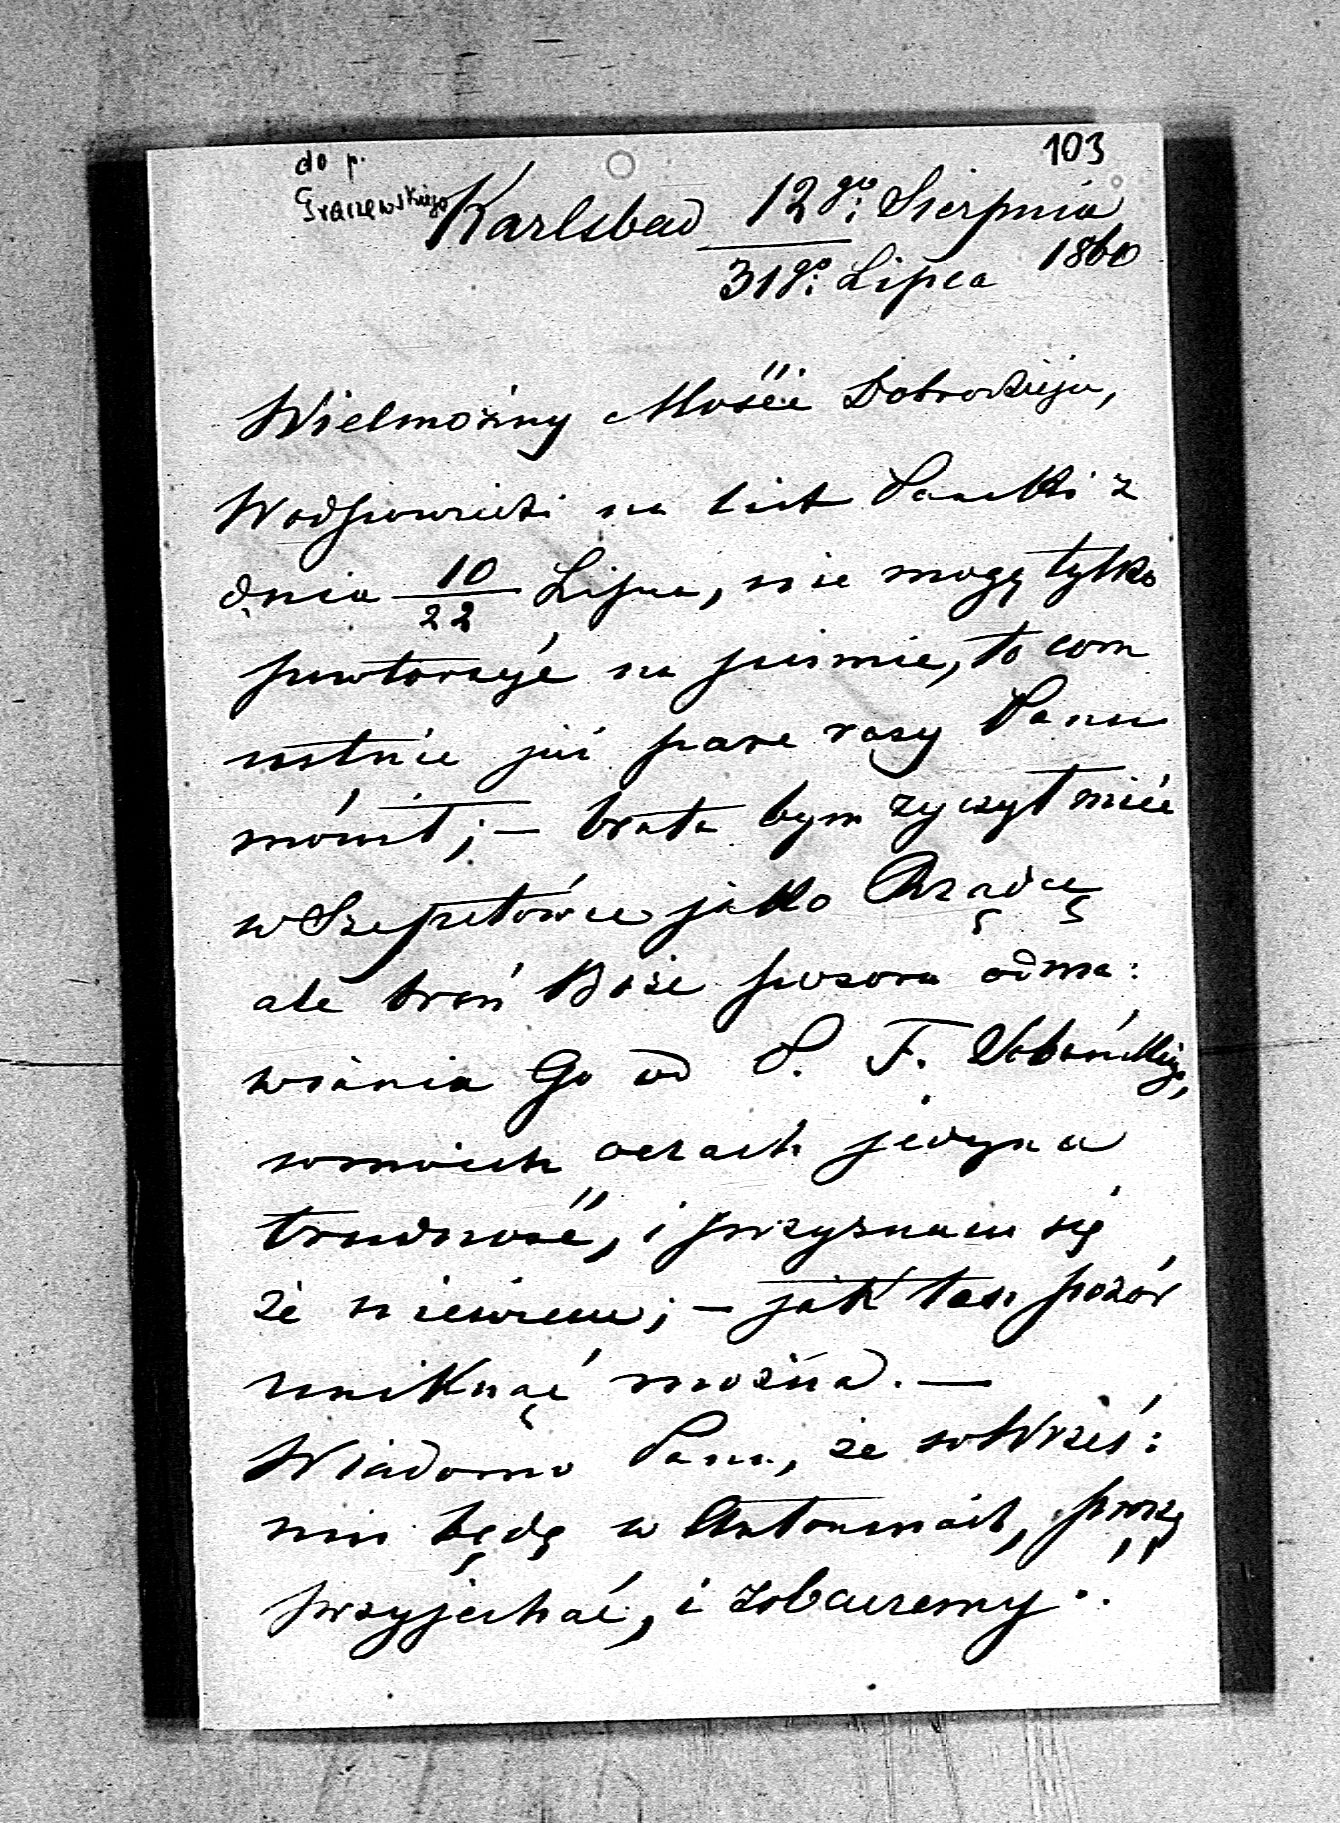 103
do p.
Graczewskiego
Karlsbad 12go: Sierpnia
31go: Lipca 1860
Wielmożny Mośćie Dobrodzieju,
W odpowiedzi na list Pański z
dnia 10/22 Lipca, nie mogę tylko
powtorzyć na piśmie, to com
ustnie już pare razy Panu
mówił; — brata bym zyczył mieć
w Szepetówce jako Rządcę
ale broń Boże pozora odma:
wiania Go od P. F.
w moich oczach jedyna
trudność, i przyznam się
że niewiem; — jak ten pozór
uniknąć można. —
Wiadomo Panu, że w Wrześ:
niu będę w Antoninach, proszę
przyjechać, i zobaczemy.